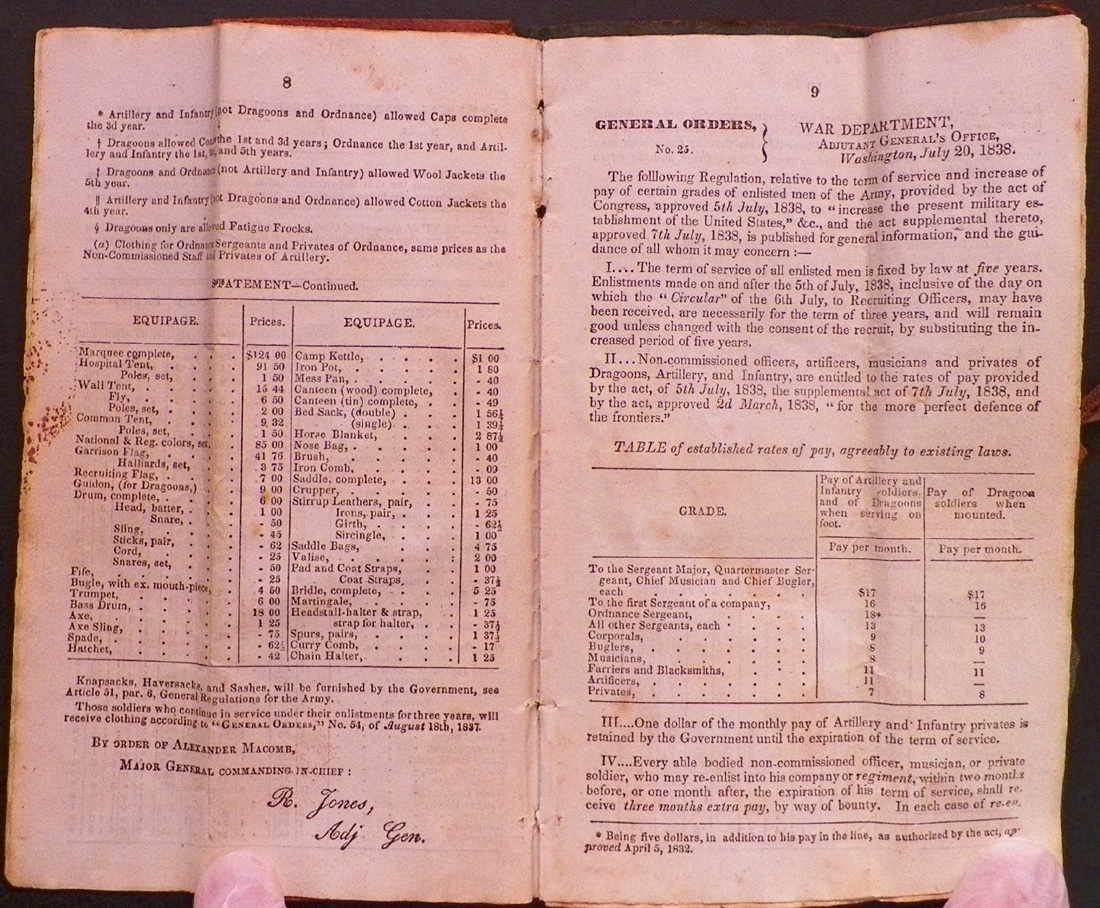 8
* Artillery and Infantry (not Dragoons and Ordnance) allowed Caps complete
the 3d year.
† Dragoons allowed the 1st and 3d years; Ordnance the 1st year, and Artil-
lery and Infantry the 1st, and 5th years.
‡ Dragoons and Ordnance (not Artillery and Infantry) allowed Wool Jackets the
5th year.
‖ Artillery and Infantry (not Dragoons and Ordnance) allowed Cotton Jackets the
4th year.
§ Dragoons only are allowed Fatigue Frocks.
(a) Clothing for Ordnance Sergeants and Privates of Ordnance, same prices as the
Non-Commissioned Staff and Privates of Artillery.
STATEMENT—Continued.
EQUIPAGE. Prices. EQUIPAGE. Prices.
Marquee complete, $124 00 Camp Kettle, $1 00
Hospital Tent, 91 50 Iron Pot, 1 80
Poles, set, 1 50 Mess Pan, - 40
Wall Tent, 15 44 Canteen (wood) complete, - 40
Fly, 6 50 Canteen (tin) complete, - 49
Poles, set, 2 00 Bed Sack, (double) 1 56¼
Common Tent, 9 32 (single) 1 39½
Poles, set, 1 50 Horse Blanket, 2 87½
National & Reg. colors, set, 85 00 Nose Bag, 1 00
Garrison Flag, 41 76 Brush, - 40
Halliards, set, 3 75 Iron Comb, - 09
Recruiting Flag, 7 00 Saddle, complete, 13 00
Guidon, (for Dragoons,) 9 00 Crupper, - 50
Drum, complete, 6 00 Stirrup Leathers, pair, - 75
Head, batter, 1 00 Irons, pair, 1 25
Snare, - 50 Girth, - 62½
Sling, - 45 Sircingle, 1 00
Sticks, pair, - 62 Saddle Bags, 4 75
Cord, - 25 Valise, 2 00
Snares, set, - 50 Pad and Coat Straps, 1 00
Fife, - 25 Coat Straps, - 37½
Bugle, with ex. mouth-piece, 4 50 Bridle, complete, 5 25
Trumpet, 6 00 Martingale, - 75
Bass Drum, 18 00 Headstall-halter & strap, 1 25
Axe, 1 25 strap for halter, - 37½
Axe Sling, - 75 Spurs, pairs, 1 37½
Spade, - 62½ Curry Comb, - 17
Hatchet, - 42 Chain Halter, 1 25
Knapsacks, Haversacks, and Sashes, will be furnished by the Government, see
Article 51, par. 6, General Regulations for the Army.
Those soldiers who continue in service under their enlistments for three years, will
receive clothing according to "GENERAL ORDERS," No. 54, of August 18th, 1837.
BY ORDER OF ALEXANDER MACOMB,
MAJOR GENERAL COMMANDING-IN-CHIEF:
R. Jones,
Adj. Gen.
9
GENERAL ORDERS,
No. 25.
WAR DEPARTMENT,
ADJUTANT GENERAL'S OFFICE,
Washington, July 20, 1838.
The folllowing Regulation, relative to the term of service and increase of
pay of certain grades of enlisted men of the Army, provided by the act of
Congress, approved 5th July, 1838, to "increase the present military es-
tablishment of the United States," &c., and the act supplemental thereto,
approved 7th July, 1838, is published for general information, and the gui-
dance of all whom it may concern:—
I.... The term of service of all enlisted men is fixed by law at five years.
Enlistments made on and after the 5th of July, 1838, inclusive of the day on
which the "Circular" of the 6th July, to Recruiting Officers, may have
been received, are necessarily for the term of three years, and will remain
good unless changed with the consent of the recruit, by substituting the in-
creased period of five years.
II... Non-commissioned officers, artificers, musicians and privates of
Dragoons, Artillery, and Infantry, are entitled to the rates of pay provided
by the act, of 5th July, 1838, the supplemental act of 7th July, 1838, and
by the act, approved 2d March, 1838, "for the more perfect defence of
the frontiers."
TABLE of established rates of pay, agreeably to existing laws.
GRADE.
Pay of Artillery and
Infantry soldiers,
and of Dragoons
when serving on
foot.
Pay of Dragoon
soldiers when
mounted.
Pay per month. Pay per month.
To the Sergeant Major, Quartermaster Ser-
geant, Chief Musician and Chief Bugler,
each $17 $17
To the first Sergeant of a company, 16 16
Ordnance Sergeant, 18* —
All other Sergeants, each 13 13
Corporals, 9 10
Buglers, 8 9
Musicians, 8 —
Farriers and Blacksmiths, 11 11
Artificers, 11 —
Privates, 7 8
III....One dollar of the monthly pay of Artillery and Infantry privates is
retained by the Government until the expiration of the term of service.
IV....Every able bodied non-commissioned officer, musician, or private
soldier, who may re-enlist into his company or regiment, within two months
before, or one month after, the expiration of his term of service, shall re-
ceive three months extra pay, by way of bounty. In each case of re-en-
* Being five dollars, in addition to his pay in the line, as authorized by the act, ap-
proved April 5, 1832.